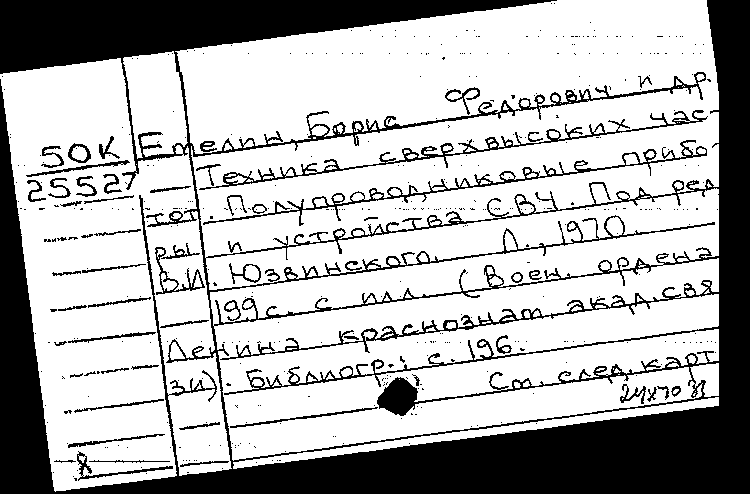 50К
25527
Емелин, Борис Федорович и др.
Техника сверхвысоких час-
тот. Полупроводниковые прибо-
ры и устройства СВЧ. Под ред
В.И. Юзвинского. Л., 1970.
199 с. с илл. (Воен. ордена
Ленина краснознам. акад. свя
зи). Библиогр.: с. 196.
См. след. карт